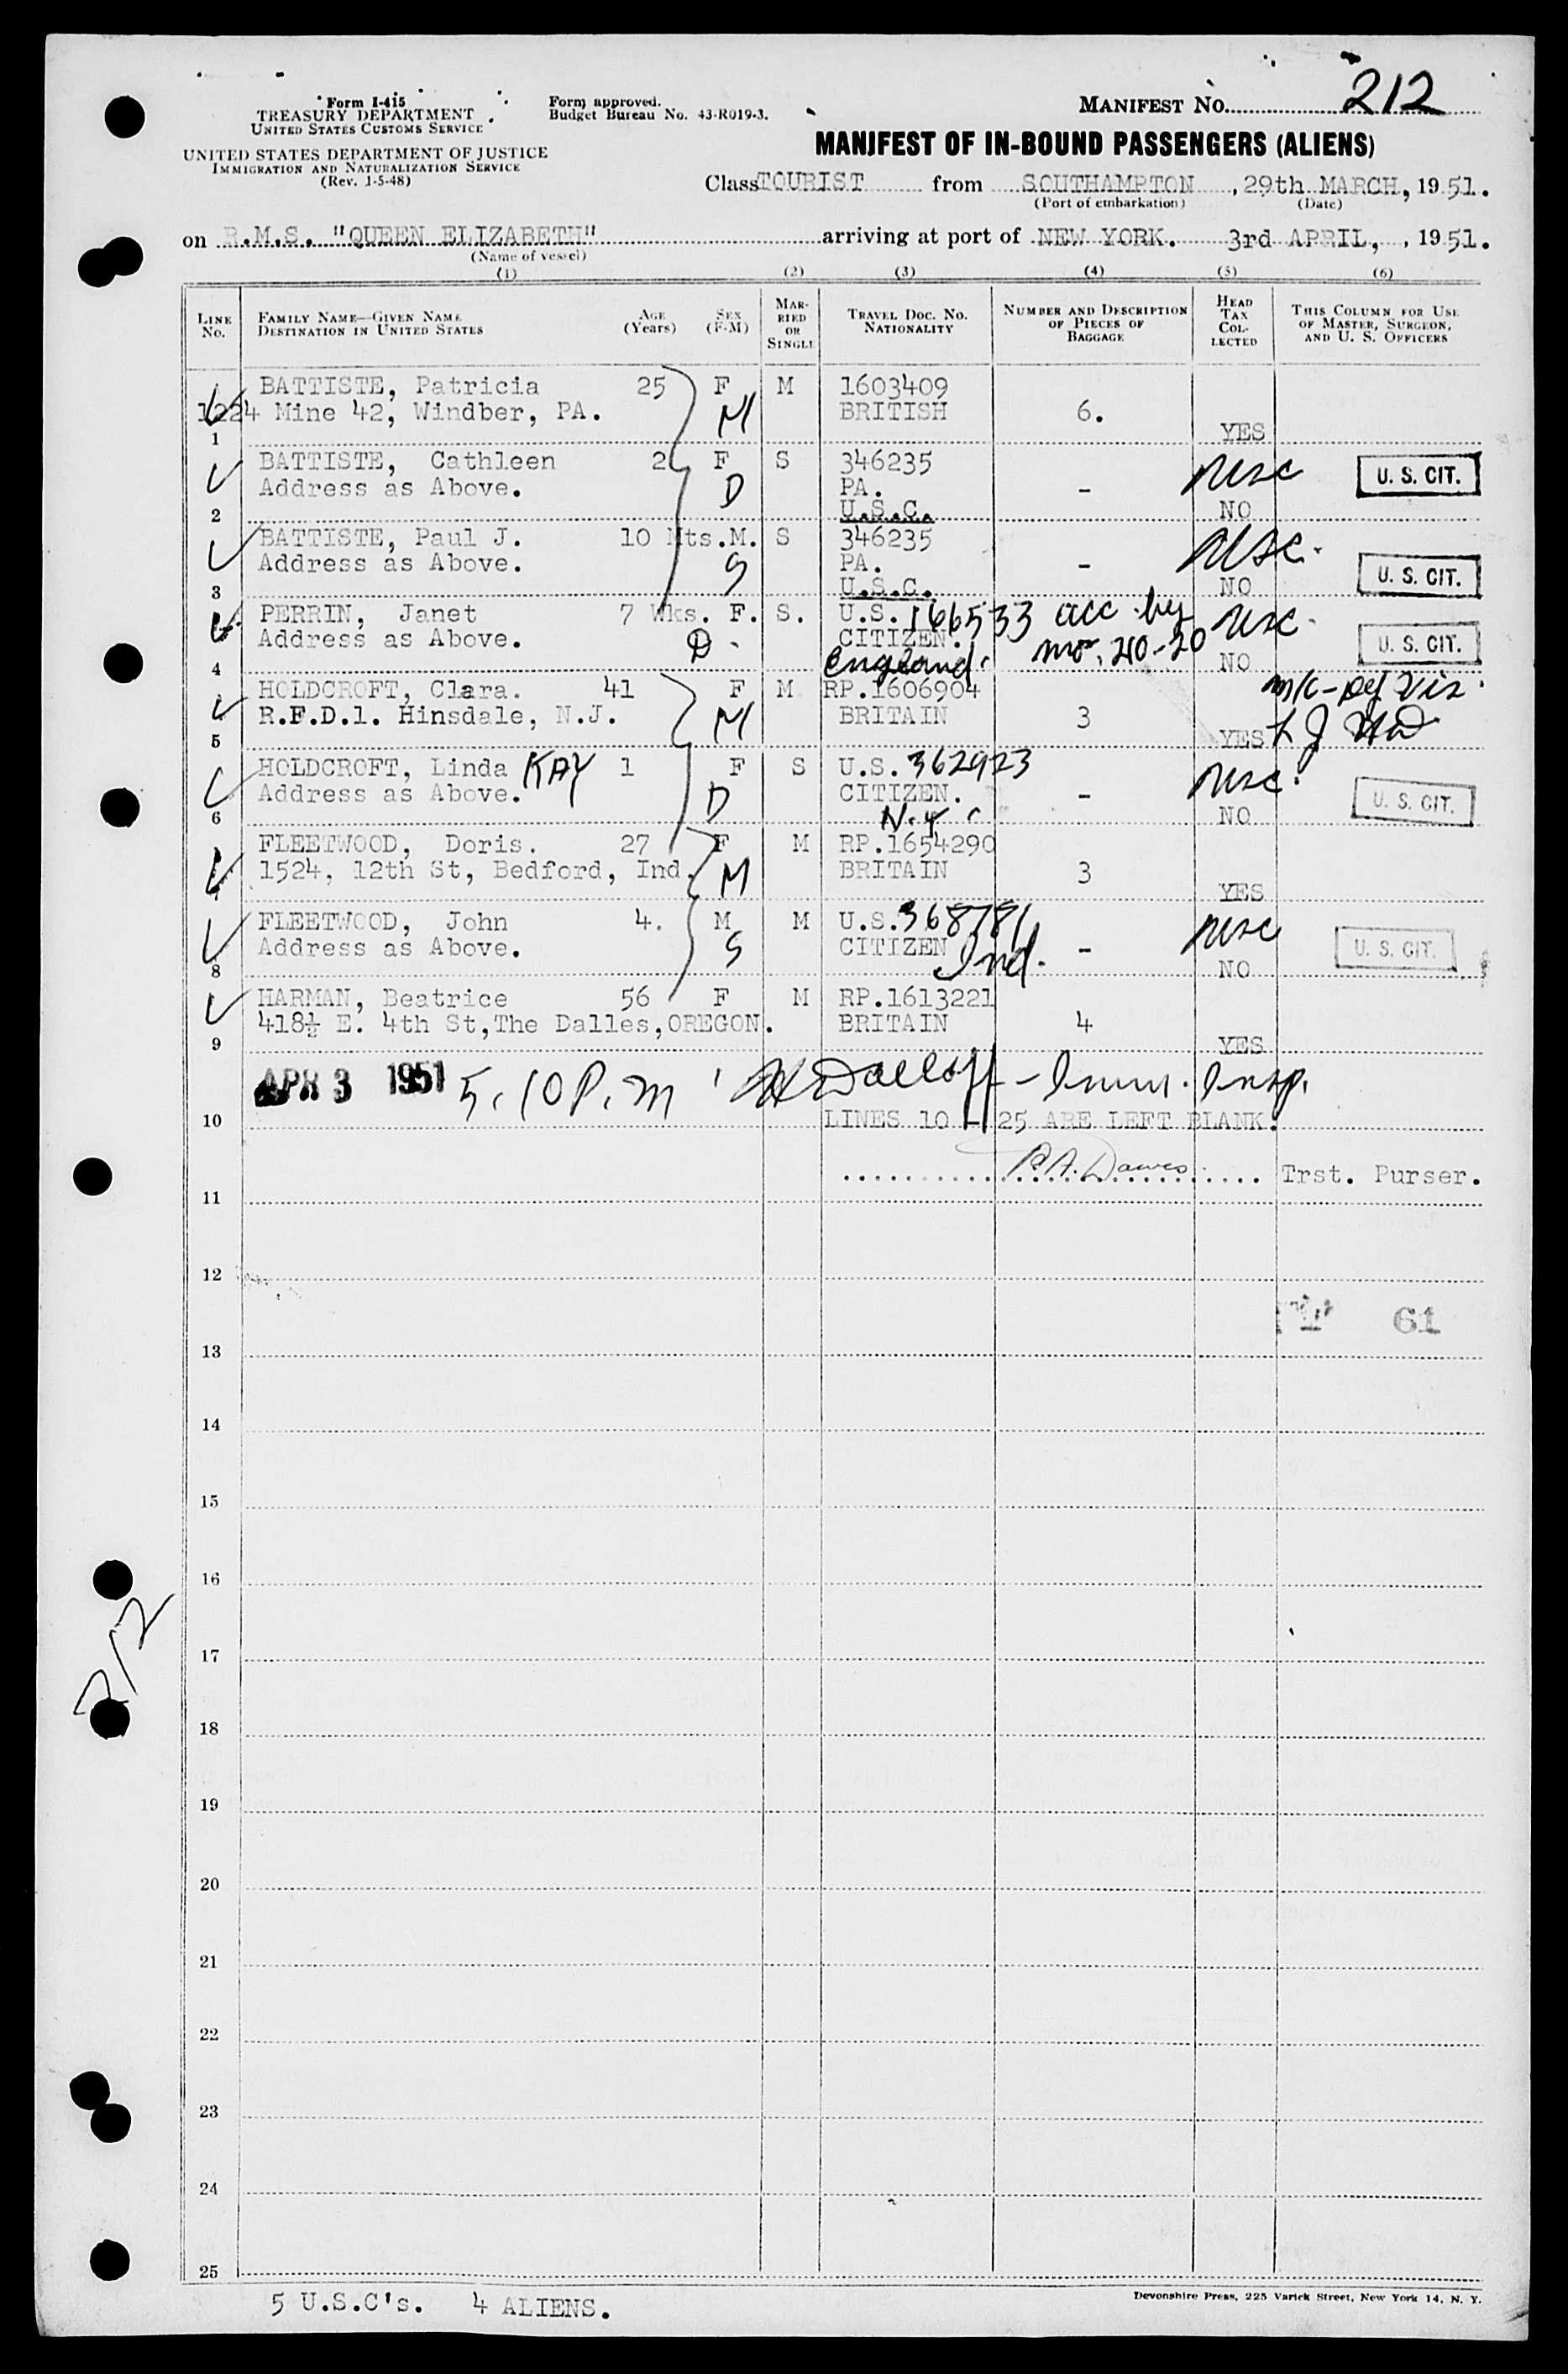 Form I-415
TREASURY DEPARTMENT
UNITED STATES CUSTOMS SERVICE
UNITED STATES DEPARTMENT OF JUSTICE
IMMIGRATION AND NATURALIZATION SERVICE
(Rev. 1-5-48)
Form approved.
Budget Bureau No. 43-R019-3.
MANIFEST NO. 212
MANIFEST OF IN-BOUND PASSENGERS (ALIENS)
Class TOURIST from SOUTHAMPTON, 29th MARCH, 1951.
(Port of embarkation) (Date)
on R.M.S. "QUEEN ELIZABETH" arriving at port of NEW YORK. 3rd APRIL, , 1951.
(Name of vessel)
(1) (2) (3) (4) (5) (6)
LINE NO. FAMILY NAME—GIVEN NAME DESTINATION IN UNITED STATES AGE (Years) SEX (F-M) MARRIED OR SINGLE TRAVEL DOC. NO. NATIONALITY NUMBER AND DESCRIPTION OF PIECES OF BAGGAGE HEAD TAX COLLECTED THIS COLUMN FOR USE OF MASTER, SURGEON, AND U. S. OFFICERS
BATTISTE, Patricia 25 F M 1603409
1224 Mine 42, Windber, PA. M BRITISH 6.
1 YES
BATTISTE, Cathleen 2 F S 346235 USC U. S. CIT.
Address as Above. D PA. -
2 U.S.C. NO
BATTISTE, Paul J. 10 Mts. M. S 346235 USC.
Address as Above. S PA. - U. S. CIT.
3 U.S.C. NO
PERRIN, Janet 7 Wks. F. S. U.S. 166533 acc by USC.
Address as Above. D CITIZEN. mo. 210-20 U. S. CIT.
4 England. NO
HOLDCROFT, Clara. 41 F M RP.1606904
R.F.D.1. Hinsdale, N.J. M BRITAIN 3
5 YES
HOLDCROFT, Linda KAY 1 F S U.S. 362923 USC.
Address as Above. D CITIZEN. - U. S. CIT.
6 N.Y NO
FLEETWOOD, Doris. 27 F M RP.1654290
1524, 12th St, Bedford, Ind. M BRITAIN 3
7 YES
FLEETWOOD, John 4. M M U.S. 368781 USC
Address as Above. S CITIZEN Ind. - U. S. CIT.
8 NO
HARMAN, Beatrice 56 F M RP.1613221
418½ E. 4th St, The Dalles, OREGON. BRITAIN 4
9 YES
APR 3 1951 5.10 P.m Imm. Insp.
10 LINES 10 - 25 ARE LEFT BLANK.
P.A. Dawes Trst. Purser.
11
12
61
13
14
15
16
212
17
18
19
20
21
22
23
24
25
5 U.S.C's. 4 ALIENS.
Devonshire Press, 225 Varick Street, New York 14, N. Y.